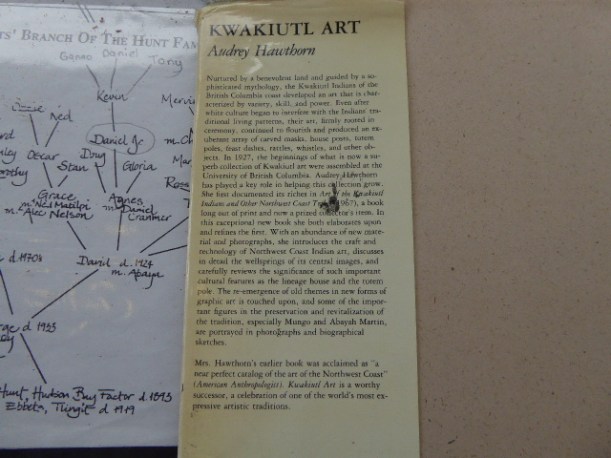 TS' BRANCH OF THE HUNT FAM
Ganao Daniel Tony
Kevin
Mervin
Ozzie
Ned
Daniel Jr
m. Ch
Oscar
Doug
Stan
Gloria
Ross
Grace
m. Alec Nelson
Agnes
m. Daniel
Cranmer
d. 1908
David d. 1924
m. Abaya
d 1933
Hunt, Hudson Bay Factor d. 1893
Ebbets, Tlingit d 1919
KWAKIUTL ART
Audrey Hawthorn
Nurtured by a benevolent land and guided by a so-
phisticated mythology, the Kwakiutl Indians of the
British Columbia coast developed an art that is char-
acterized by variety, skill, and power. Even after
white culture began to interfere with the Indians' tradi-
tional living patterns, their art, firmly rooted in
ceremony, continued to flourish and produced an ex-
uberant array of carved masks, house posts, totem
poles, feast dishes, rattles, whistles, and other ob-
jects. In 1927, the beginnings of what is now a su-
perb collection of Kwakiutl art were assembled at the
University of British Columbia. Audrey Hawthorn
has played a key role in helping this collection grow.
She first documented its riches in Art of the Kwakiutl
Indians and Other Northwest Coast (1967), a book
long out of print and now a prized collector's item. In
this exceptional new book she both elaborates upon
and refines the first. With an abundance of new mate-
rial and photographs, she introduces the craft and
technology of Northwest Coast Indian art, discusses
in detail the wellsprings of its central images, and
carefully reviews the significance of such important
cultural features as the lineage house and the totem
pole. The re-emergence of old themes in new forms of
graphic art is touched upon, and some of the impor-
tant figures in the preservation and revitalization of
the tradition, especially Mungo and Abayah Martin,
are portrayed in photographs and biographical
sketches.
Mrs. Hawthorn's earlier book was acclaimed as "a
near perfect catalog of the art of the Northwest Coast"
(American Anthropologist). Kwakiutl Art is a worthy
successor, a celebration of one of the world's most ex-
pressive artistic traditions.